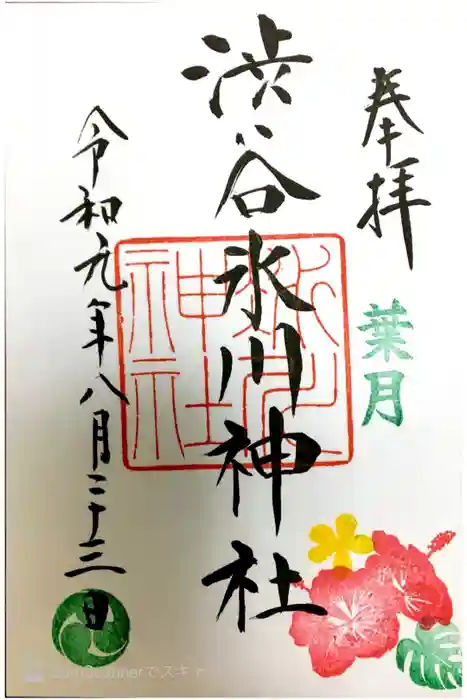 奉拝
葉月
渋谷氷川神社
令和元年八月二十三日
CamScannerでスキャ